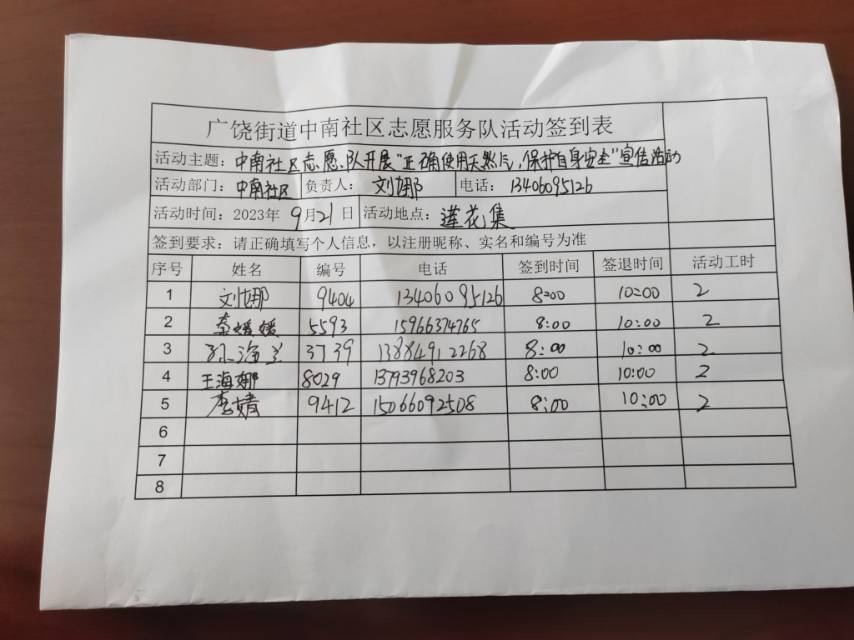 广饶街道中南社区志愿服务队活动签到表
活动主题：中南社区志愿队开展“正确使用天然气，保护自身安全”宣传活动
活动部门：中南社区 负责人：刘娜 电话：13406095126
活动时间：2023年 9月21日 活动地点：莲花集
签到要求：请正确填写个人信息，以注册昵称、实名和编号为准
序号 姓名 编号 电话 签到时间 签退时间 活动工时
1 刘娜 9404 13406095126 8:00 10:00 2
2 李媛媛 5593 15966374765 8:00 10:00 2
3 孙海兰 3739 13884912268 8:00 10:00 2
4 王海娜 8029 13793968203 8:00 10:00 2
5 李婧 9412 15066092508 8:00 10:00 2
6
7
8